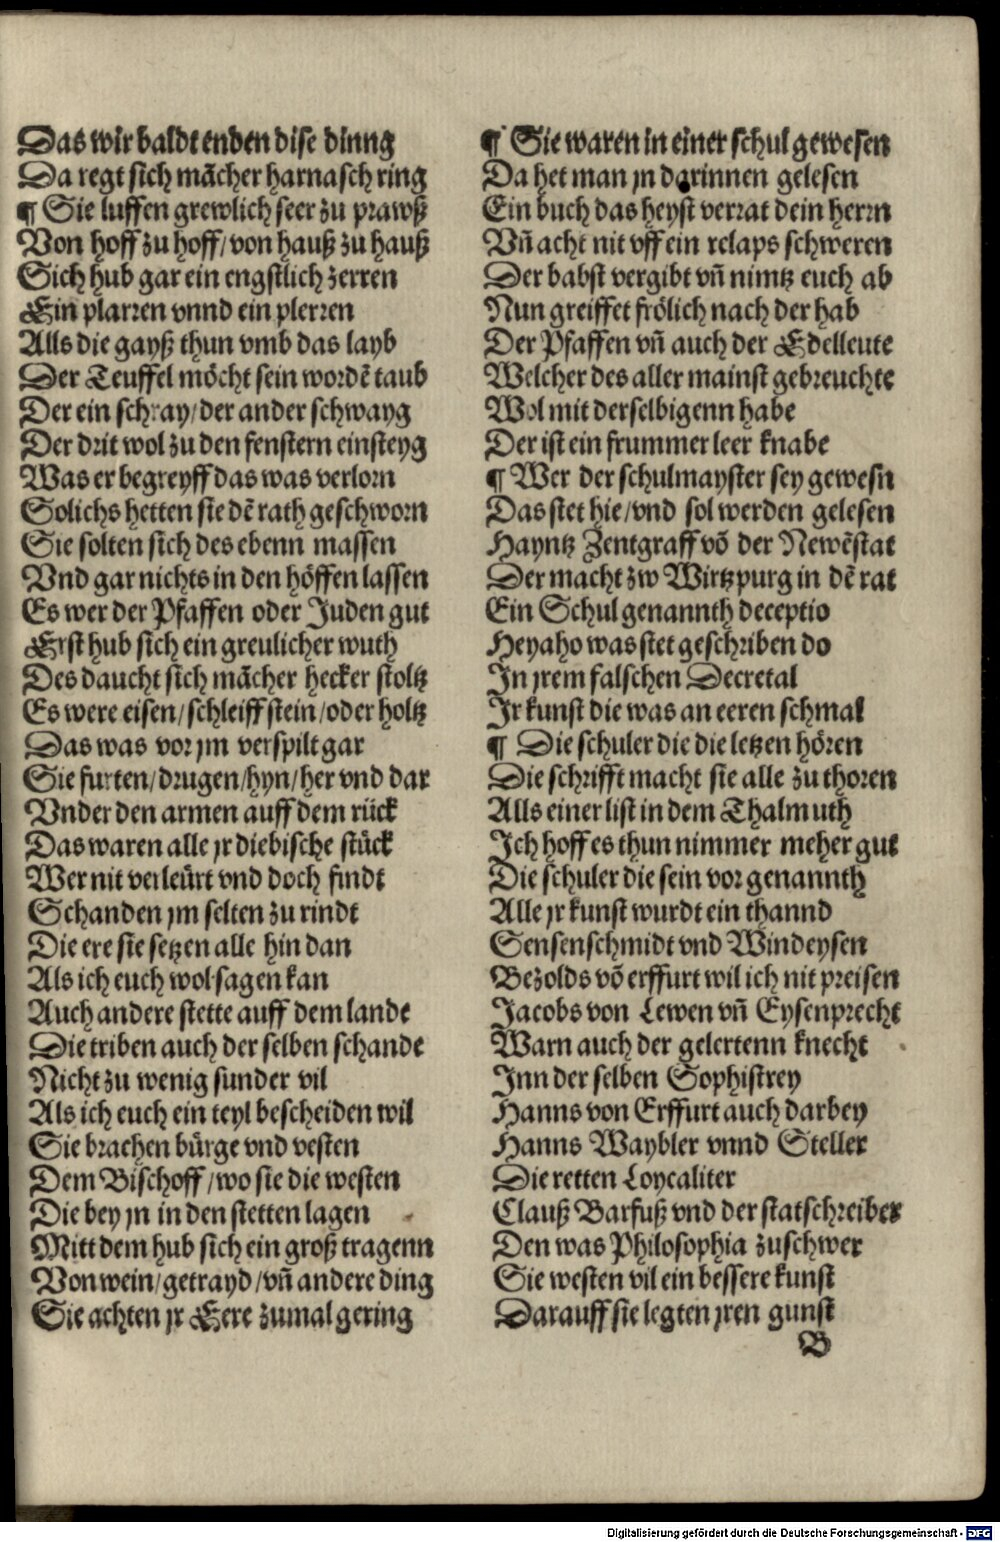 Das wir baldt enden dise dinng
Da regt sich mācher harnasch ring
¶ Sie luffen grewlich seer zu prawß
Von hoff zu hoff/ von hauß zu hauß
Sich hub gar ein engstlich zerren
Ein plarren vnnd ein plerren
Alls die gayß thun vmb das layb
Der Teuffel möcht sein wordē taub
Der ein schray/ der ander schwayg
Der drit wol zu den fenstern einsteyg
Was er begreyff das was verlorn
Solichs hetten sie dē rath geschworn
Sie solten sich des ebenn massen
Vnd gar nichts in den höffen lassen
Es wer der Pfaffen oder Juden gut
Erst hub sich ein greulicher wuth
Des daucht sich mācher hecker stoltz
Es were eisen/ schleiff stein/ oder holtz
Das was vor jm verspilt gar
Sie furten/ drugen/ hyn/ her vnd dar
Vnder den armen auff dem rück
Das waren alle jr diebische stück
Wer nit verleürt vnd doch findt
Schanden jm selten zu rindt
Die ere sie setzen alle hin dan
Als ich euch wol sagen kan
Auch andere stette auff dem lande
Die triben auch der selben schande
Nicht zu wenig sunder vil
Als ich euch ein teyl bescheiden wil
Sie brachen bürge vnd vesten
Dem Bischoff/ wo sie die westen
Die bey jn in den stetten lagen
Mitt dem hub sich ein groß tragenn
Von wein/ getrayd/ vn̄ andere ding
Sie achten jr Eere zumal gering
¶ Sie waren in einer schul gewesen
Da het man jn darinnen gelesen
Ein buch das heyst verrat dein herrn
Vn̄ acht nit vff ein relaps schweren
Der babst vergibt vn̄ nimtz euch ab
Nun greiffet frölich nach der hab
Der Pfaffen vn̄ auch der Edelleute
Welcher des aller mainst gebreuchte
Wol mit derselbigenn habe
Der ist ein frummer leer knabe
¶ Wer der schulmayster sey gewesn
Das stet hie/ vnd sol werden gelesen
Hayntz Zentgraff vō der Newēstat
Der macht zw Wirtzpurg in dē rat
Ein Schul genannth deceptio
Heyaho was stet geschriben do
In jrem falschen Decretal
Ir kunst die was an eeren schmal
¶ Die schuler die die letzen hören
Die schrifft macht sie alle zu thoren
Alls einer list in dem Thalmuth
Ich hoff es thun nimmer meher gut
Die schuler die sein vor genannth
Alle jr kunst wurdt ein thannd
Sensenschmidt vnd Windeysen
Bezolds vō erffurt wil ich nit preisen
Jacobs von Lewen vn̄ Eysenprecht
Warn auch der gelertenn knecht
Inn der selben Sophistrey
Hanns von Erffurt auch darbey
Hanns Waybler vnnd Steller
Die retten Loycaliter
Clauß Barfuß vnd der statschreiber
Den was Philosophia zuschwer
Sie westen vil ein bessere kunst
Darauff sie legten jren gunst
B
Digitalisierung gefördert durch die Deutsche Forschungsgemeinschaft - DFG